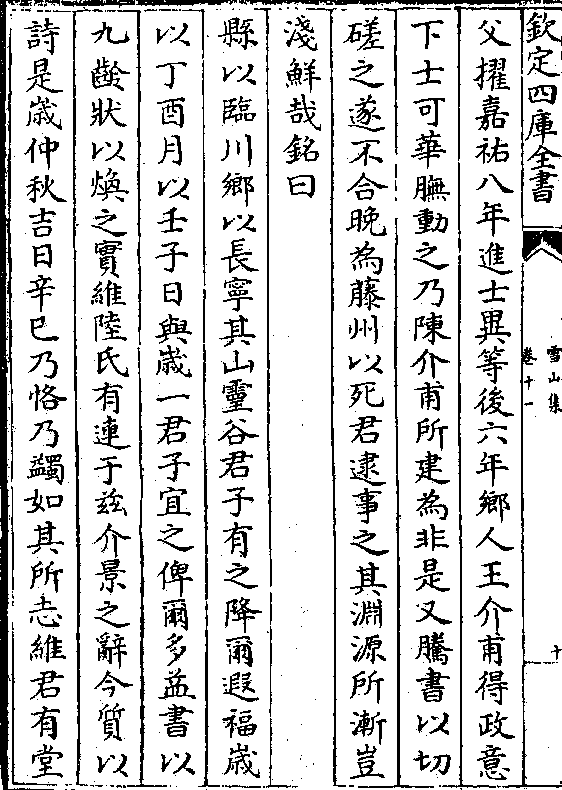 欽定四庫全書
雪山集
卷十一
十
父擢嘉祐八年進士異等後六年鄉人王介甫得政意
下士可華膴動之乃陳介甫所建為非是又騰書以切
磋之遂不合晚為藤州以死君逮事之其淵源所漸豈
淺鮮哉銘曰
縣以臨川鄉以長寧其山靈谷君子有之降爾遐福歲
以丁酉月以壬子日與歲一君子宜之俾爾多益書以
九齡狀以煥之實維陸氏有連于兹介景之辭今質以
詩是歲仲秋吉日辛巳乃恪乃蠲如其所志維君有堂